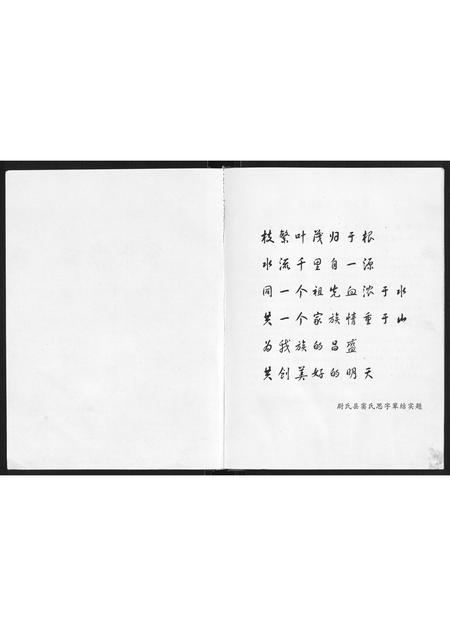 枝繁叶茂归于根
水流千里自一源
同一个祖先血浓于水
共一个家族情重于山
为我族的昌盛
共创美好的明天
尉氏县蛮氏思字辈结实题